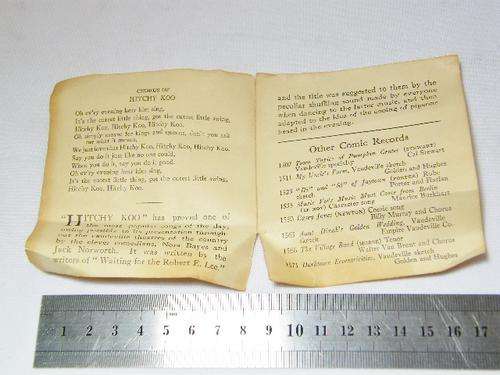 CHORUS OF
HITCHY KOO
Oh ev'ry evening hear him sing,
It's the cutest little thing, got the cutest little swing,
Hitchy Koo, Hitchy Koo, Hitchy Koo.
Oh simply meant for kings and queens, don't you ask
me what it means,
We just love that Hitchy Koo, Hitchy Koo, Hitchy Koo.
Say you do it just like no one could,
When you do it, say you do it good.
Oh ev'ry evening hear him sing,
It's the cutest little thing, got the cutest little swing,
Hitchy Koo, Hitchy Koo.
"HITCHY KOO" has proved one of
the most popular songs of the day,
its presentation through
out the vaudeville theatres of the country
by the clever comedians, Nora Bayes and
Jack Norworth. It was written by the
writers of "Waiting for the Robert E. Lee"
and the title was suggested to them by the
peculiar shuffling sound made by everyone
when dancing to the latter music, and then
adapted to the idea of the cooing of pigeons
heard in the evening.
Other Comic Records
Town Topics of Pumpkin Center
Vaudeville specialty Cal Stewart
1511 My Uncle's Farm, Vaudeville sketch
Golden and Hughes
"Di" and "Si" of Jaytown Rube
sketch Porter and Harlan
Music Vots Music Must Come from Berlin
Character song Maurice Burkhart
Comic song
Billy Murray and Chorus
Aunt Dinah's Golden Wedding, Vaudeville
sketch Empire Vaudeville Co.
The Village Band Tenor
Walter Van Brunt and Chorus
Darktown Eccentricities, Vaudeville sketch
Golden and Hughes
1 2 3 4 5 6 7 8 9 10 11 12 13 14 15 16 17